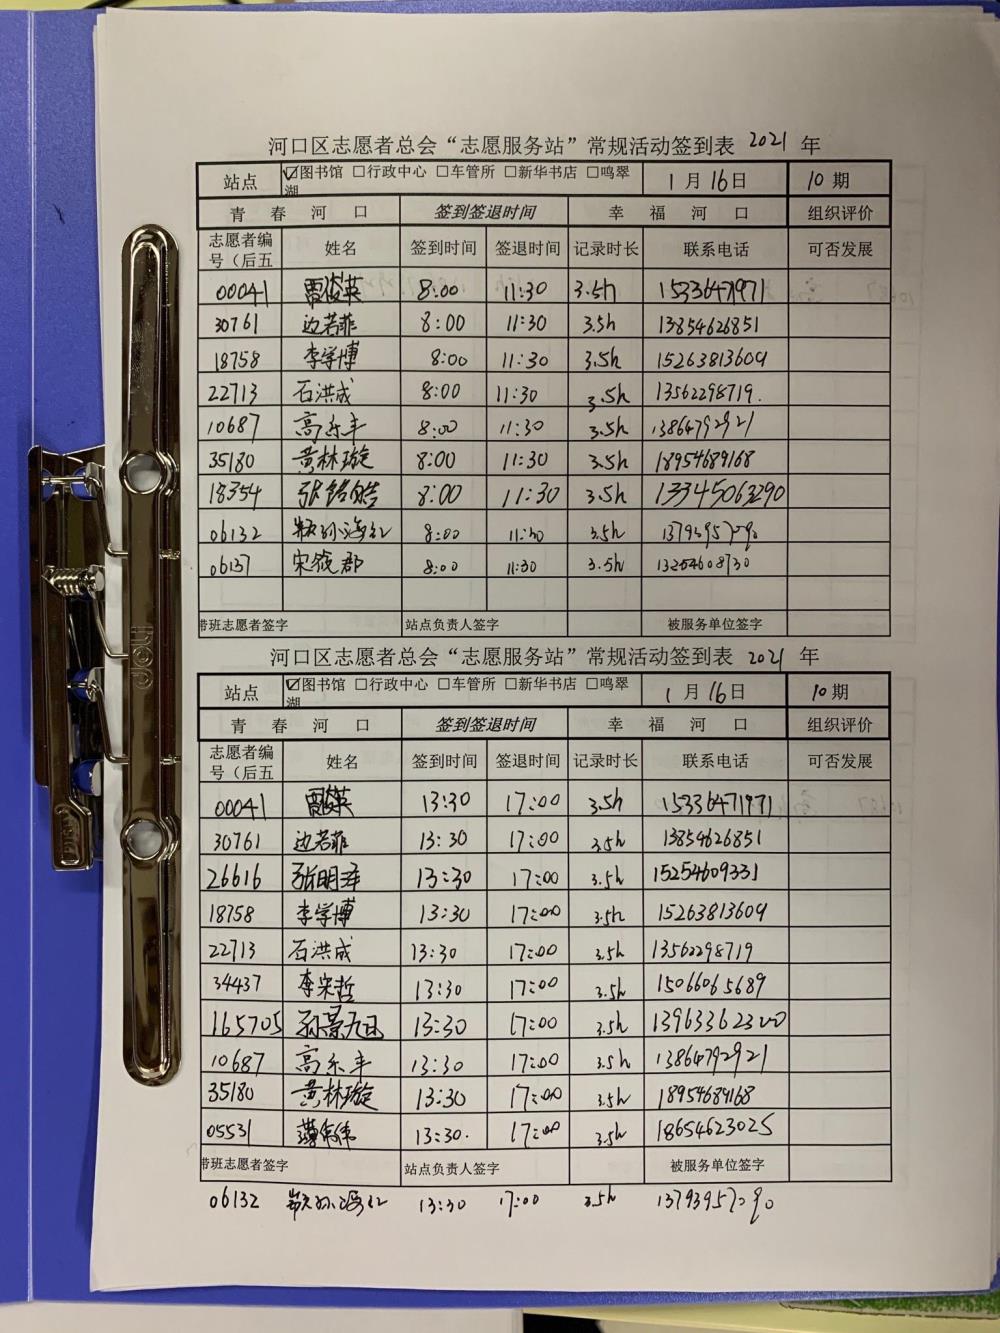 河口区志愿者总会“志愿服务站”常规活动签到表 2021 年
站点 ☑图书馆 □行政中心 □车管所 □新华书店 □鸣翠湖 1月16日 10期
青春河口 签到签退时间 幸福河口 组织评价
志愿者编号（后五 姓名 签到时间 签退时间 记录时长 联系电话 可否发展
00041 贾俊英 8:00 11:30 3.5h 15336471971
30761 边若菲 8:00 11:30 3.5h 13854626851
18758 李学博 8:00 11:30 3.5h 15263813609
22713 石洪成 8:00 11:30 3.5h 13562298719.
10687 高乐丰 8:00 11:30 3.5h 13864792921
35180 黄林璇 8:00 11:30 3.5h 18954689168
18354 8:00 11:30 3.5h 13345063290
06132 8:00 11:30 3.5h
06137 宋晓郡 8:00 11:30 3.5h 13254608730
带班志愿者签字 站点负责人签字 被服务单位签字
河口区志愿者总会“志愿服务站”常规活动签到表 2021 年
站点 ☑图书馆 □行政中心 □车管所 □新华书店 □鸣翠湖 1月16日 10期
青春河口 签到签退时间 幸福河口 组织评价
志愿者编号（后五 姓名 签到时间 签退时间 记录时长 联系电话 可否发展
00041 贾俊英 13:30 17:00 3.5h 15336471971
30761 边若菲 13:30 17:00 3.5h 13854626851
26616 张明泽 13:30 17:00 3.5h 15254609331
18758 李学博 13:30 17:00 3.5h 15263813609
22713 石洪成 13:30 17:00 3.5h 13562298719
34437 李宋哲 13:30 17:00 3.5h 15066065689
165705 孙景旭 13:30 17:00 3.5h 13963362300
10687 高乐丰 13:30 17:00 3.5h 13864792921
35180 黄林璇 13:30 17:00 3.5h 18954689168
05531 13:30. 17:00 3.5h 18654623025
带班志愿者签字 站点负责人签字 被服务单位签字
06132 13:30 17:00 3.5h